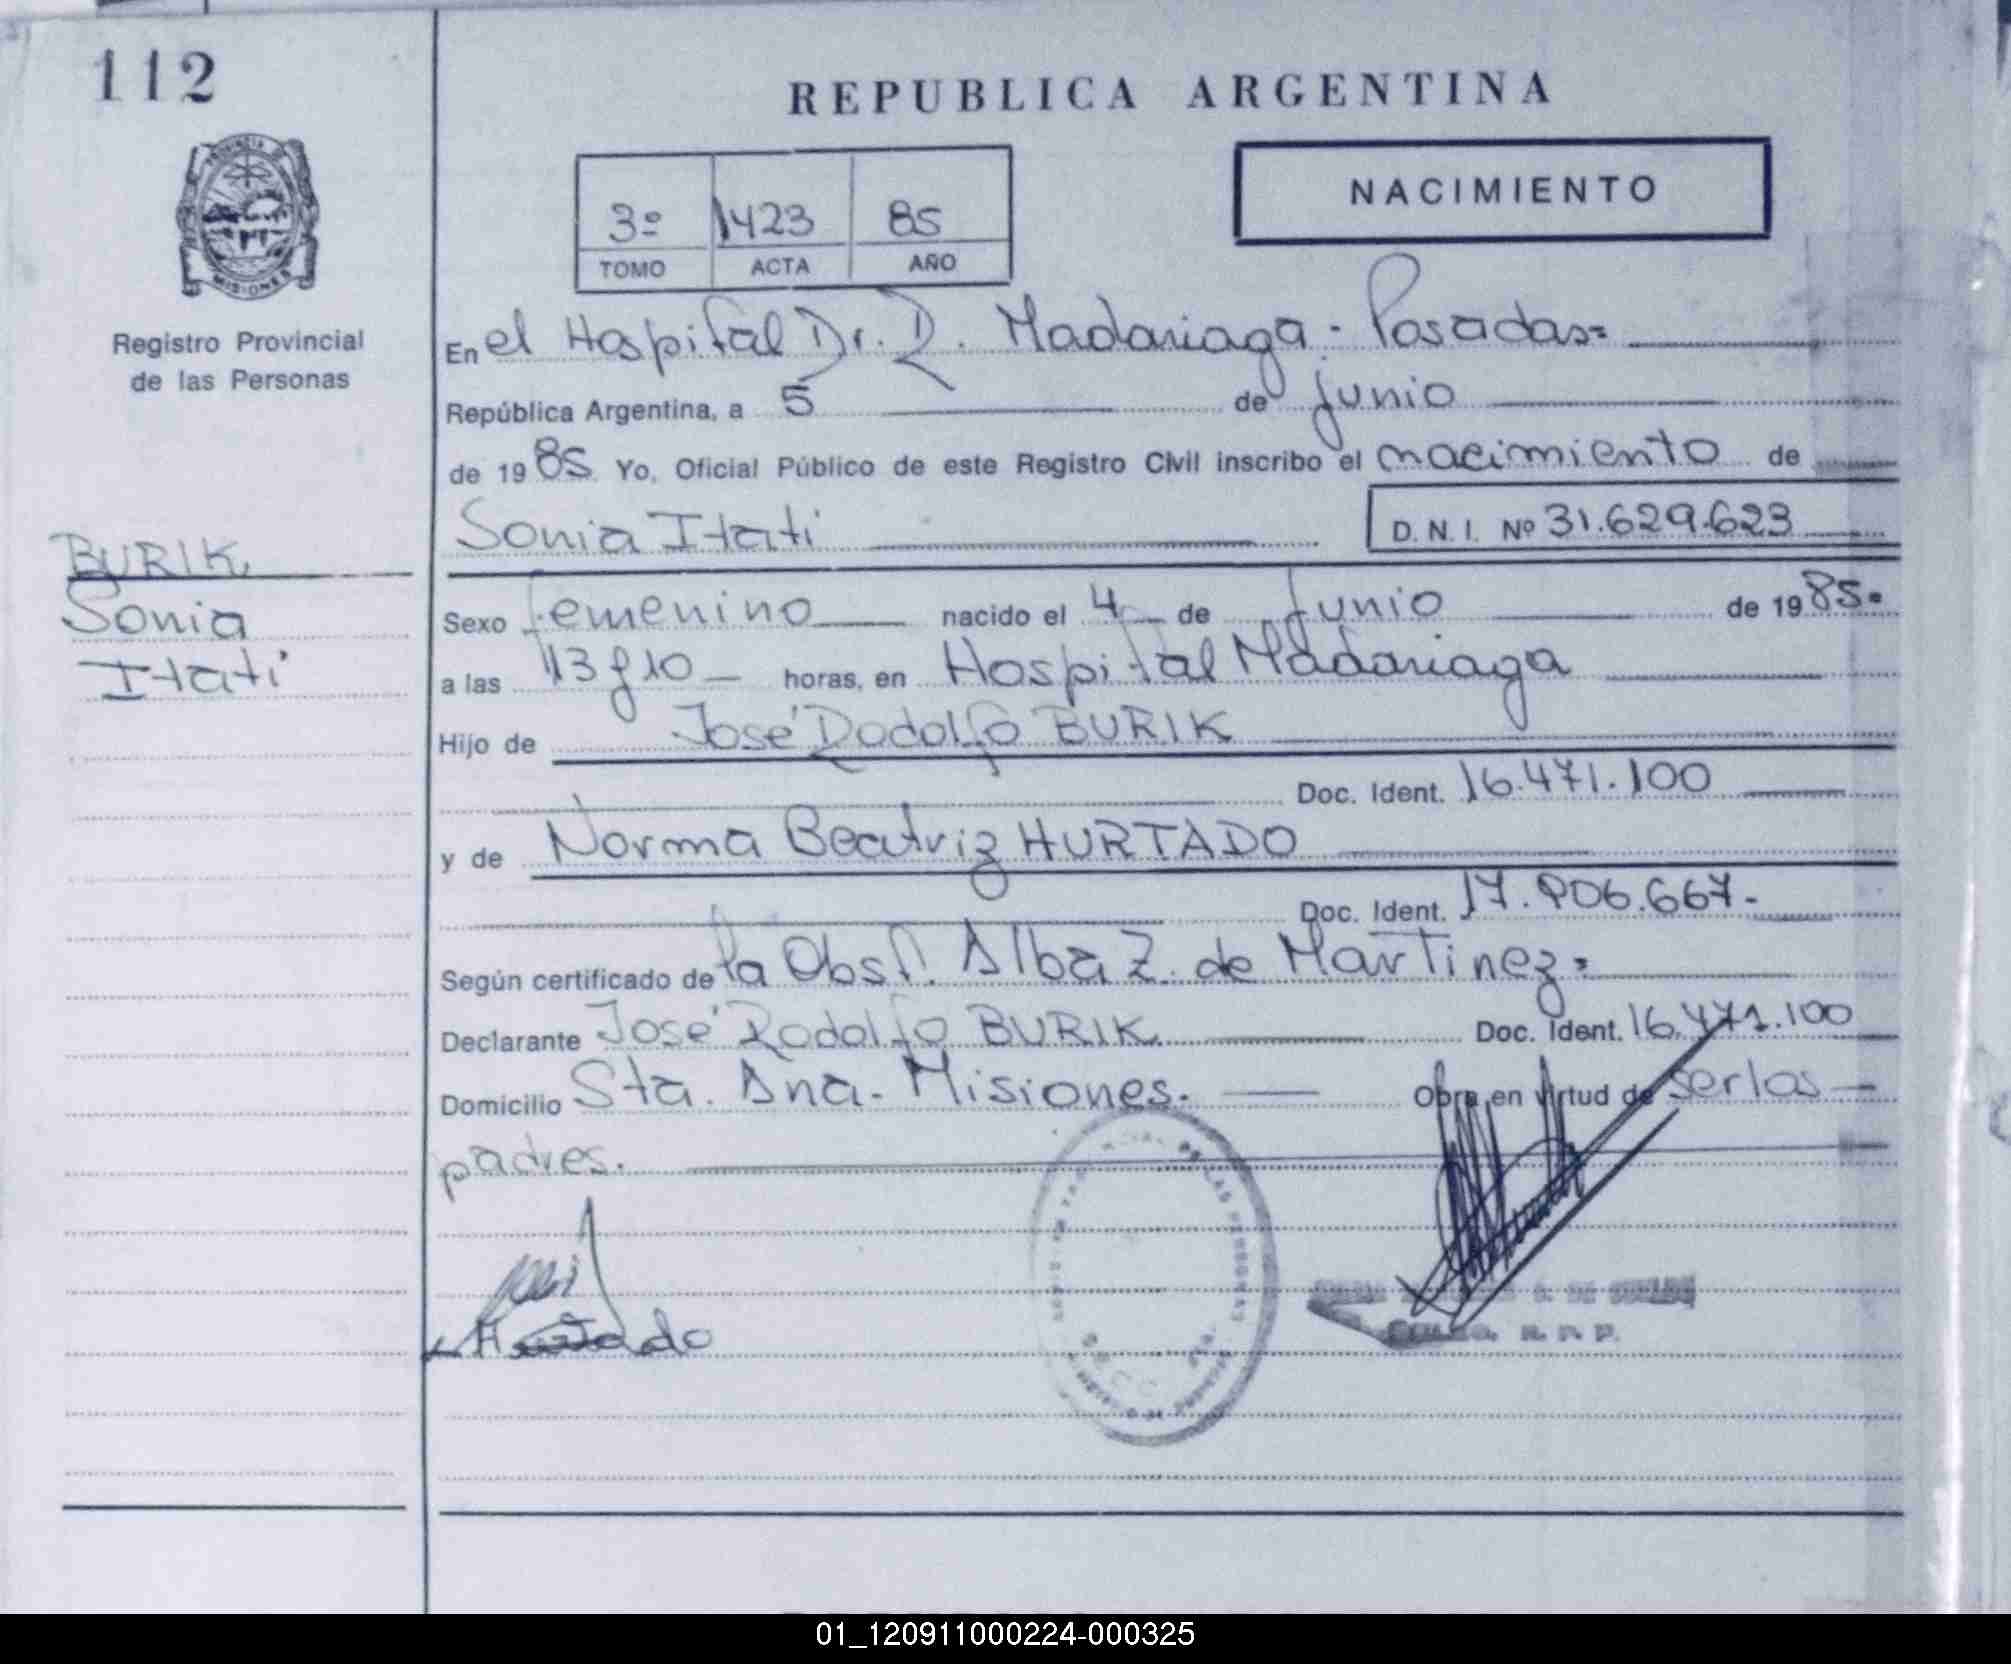 112
REPUBLICA ARGENTINA
PROVINCIA DE
MISIONES
Registro Provincial
de las Personas
NACIMIENTO
3º 1423 85
TOMO ACTA AÑO
En el Hospital Dr. R. Madariaga - Posadas=
República Argentina, a 5 de junio
de 1985 Yo, Oficial Público de este Registro Civil inscribo el nacimiento de
Sonia Itati D. N. I. Nº 31.629.623
BURIK
Sonia
Itati
Sexo femenino nacido el 4 de junio de 1985=
a las 13 y 10 horas, en Hospital Madariaga
Hijo de José Rodolfo BURIK
Doc. Ident. 16.471.100
y de Norma Beatriz HURTADO
Doc. Ident. 17.906.667-
Según certificado de la Obst. Alba Z. de Martinez=
Declarante José Rodolfo BURIK Doc. Ident. 16.471.100
Domicilio Sta. Ana - Misiones. Obra en virtud de ser los
padres.
DE LAS PERSONAS
Hurtado
01_120911000224-000325